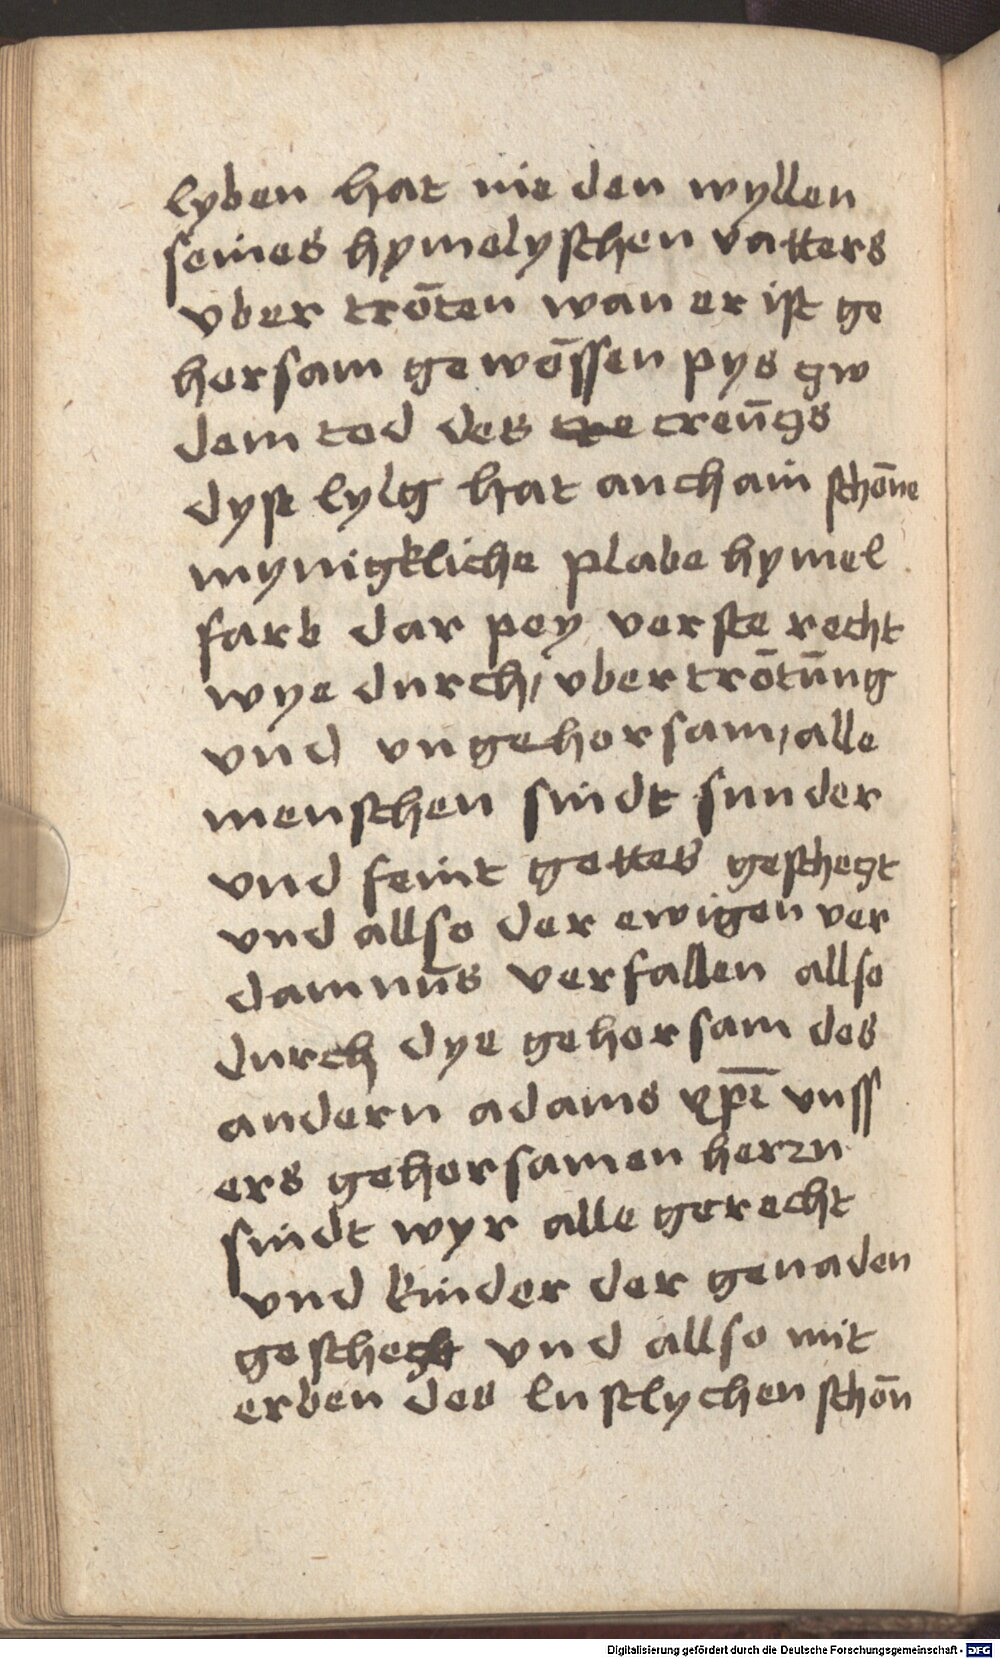 lyben hat nie den wyllen
seines hymelyschen vatters
vber trōten wan er ist ge
horsam gewōssen pys zw
dem tod des cre creūczs
dyse lylg hat auch ain schōne
mynigkliche plabe hymel
farb dar pey verste recht
wye durch, vbertrōtūng
vnd vngehorsam, alle
menschen sindt sunder
vnd feint gottes geschezt
vnd allso der ewigen ver
damnūs verfallen allso
durch dye gehorsam des
andern adams xp̄i vnss
ers gehorsamen herzn
sindt wyr alle gerecht
vnd kinder der genaden
geschezt vnd allso mit
erben des lustlychen schōn
Digitalisierung gefördert durch die Deutsche Forschungsgemeinschaft - DFG